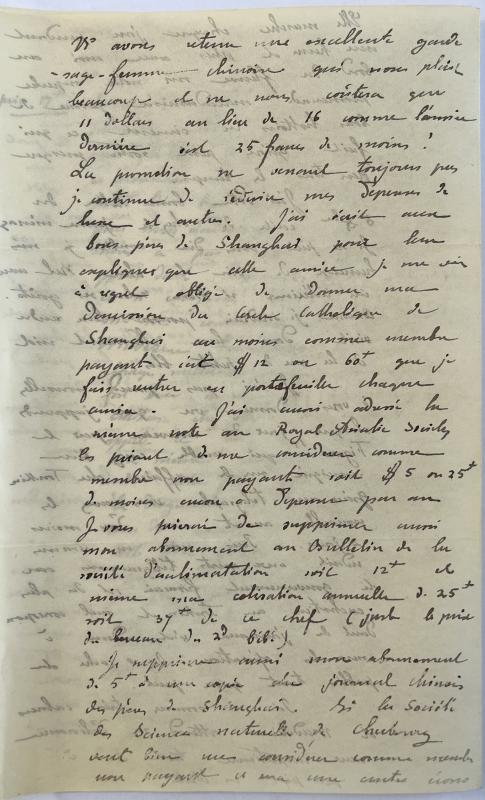 Nous avons retenu une excellente garde
- sage-femme chinoise qui nous plaît
beaucoup et ne nous coûtera que
11 dollars au lieu de 16 comme l'année
dernière soit 25 francs de moins !
La promotion ne venant toujours pas
je continue de réduire mes dépenses de
luxe et autres. J'ai écrit aux
bons pères de Shanghai pour leur
expliquer que cette année je me vois
à regret obligé de donner ma
démission du Cercle Catholique de
Shanghai au moins comme membre
payant soit $ 12 ou 60f que je
fais rentrer en portefeuille chaque
année. J'ai aussi adressé la
même note au Royal Asiatic Society
les priant de me considérer comme
membre non payant soit $ 5 ou 25f
de moins encore à dépenser par an
Je vous prierai de supprimer aussi
mon abonnement au Bulletin de la
société d'acclimatation soit 12f et
même ma cotisation annuelle de 25f
soit 37f de ce chef (juste le prix
du berceau du 2d bébé)
Je supprime aussi mon abonnement
de 5f à une copie du journal chinois
des pères de Shanghai. Si la Société
des Sciences naturelles de Cherbourg
veut bien me considérer comme membre
non payant ce sera une autre écono